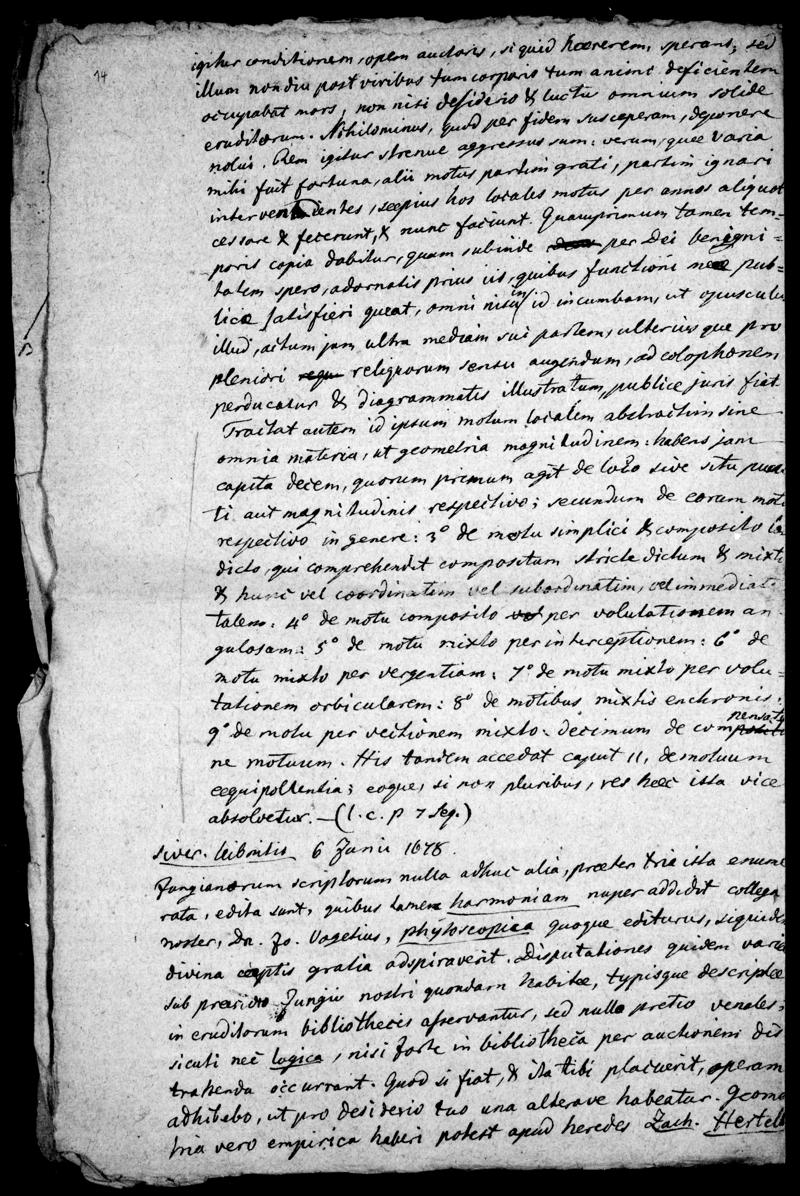 14
igitur conditionem, opem auctoris, siquid hærerem, sperans; sed
illum non diu post viribus tum corporis tum animi deficientem
occupabat mors, non nisi desiderio & luctu omnium solide
eruditorum. Nihilominus, quod per fidem susceperam, deponere
nolui. Rem igitur strenue aggressus sum: verum, quæ varia
mihi fuit fortuna, alii motus partim grati, partim ignari
intervenientes, sæpius hos locales motus per annos aliquot
cessare & fecerunt, & nunc faciunt. Quamprimum tamen tem-
poris copia dabitur, quam subinde per Dei benigni-
tatem spero, adornatis prius iis, quibus functioni meæ pub-
licæ satisfieri queat, omni nisu in id incumbam, ut opuscul
illud, actum jam ultra mediam sui partem, ulteriusque pro
pleniori religuorum sensu augendum, ad colophonem
perducatur & diagrammatis illustratum, publice juris fiat.
Tractat autem id ipsum motum localem abstractim sine
omnia materia, ut geometria magnitudinem: habens jam
capita decem, quorum primum agit de loco sive situ punc
ti aut magnitudinis respectivo; secundum de eorum mot
respectivo in genere: 3° de motu simplici & composito
dicto, qui comprehendit compositum stricte dictum & mixt
& hunc vel coordinatim vel subordinatim, vel immedia
talem: 4° de motu composito per volutationem an
gulosam: 5° de motu mixto per interceptionem: 6° de
motu mixto per vergentiam: 7° de motu mixto per volu-
tationem orbicularem: 8° de motibus mixtis enchronis:
9° de motu per vectionem mixto. decimum de compensatio
ne motuum. His tandem accedat caput 11, de motuum
æquipollentia; eoque, si non pluribus, res hæc ista vice
absolvetur. — (l. c. p 7 seq.)
Siver. Leibnitio 6 Junii 1678.
Jungianorum scriptorum nulla adhuc alia, præter tria ista enume
rata, edita sunt, quibus tamen harmoniam nuper addidit collega
noster, Dn. Jo. Vagetius, phytoscopica quoque editurus, siquide
divina cœptis gratia adspiraverit. Disputationes quidem variæ
sub præsidio Jungii nostri quondam habitæ, typisque descriptæ
in eruditorum bibliothecis asservantur, sed nullo pretio venales;
sicuti nec logica, nisi forte in bibliotheca per auctionem dis
trahenda occurrant. Quod si fiat, & ita tibi placuerit, operam
adhibebo, ut pro desiderio tuo una alterave habeatur. Geome
tria vero empirica haberi potest apud heredes Zach. Hertel